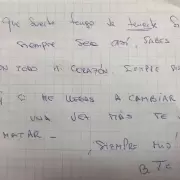 QUE SUERTE TENGO DE TENERTE
SIEMPRE SER ASÍ, SABES
TODO MI CORAZÓN. SIEMPRE
SI ME LLEGAS A CAMBIAR
UNA VEZ MÁS TE
MATAR
¡SIEMPRE MIO
B. TE